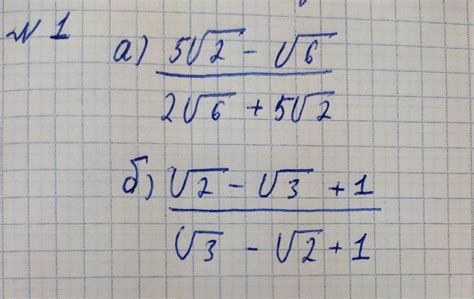 № 1
а) (5√2 - √6) / (2√6 + 5√2)
б) (√2 - √3 + 1) / (√3 - √2 + 1)